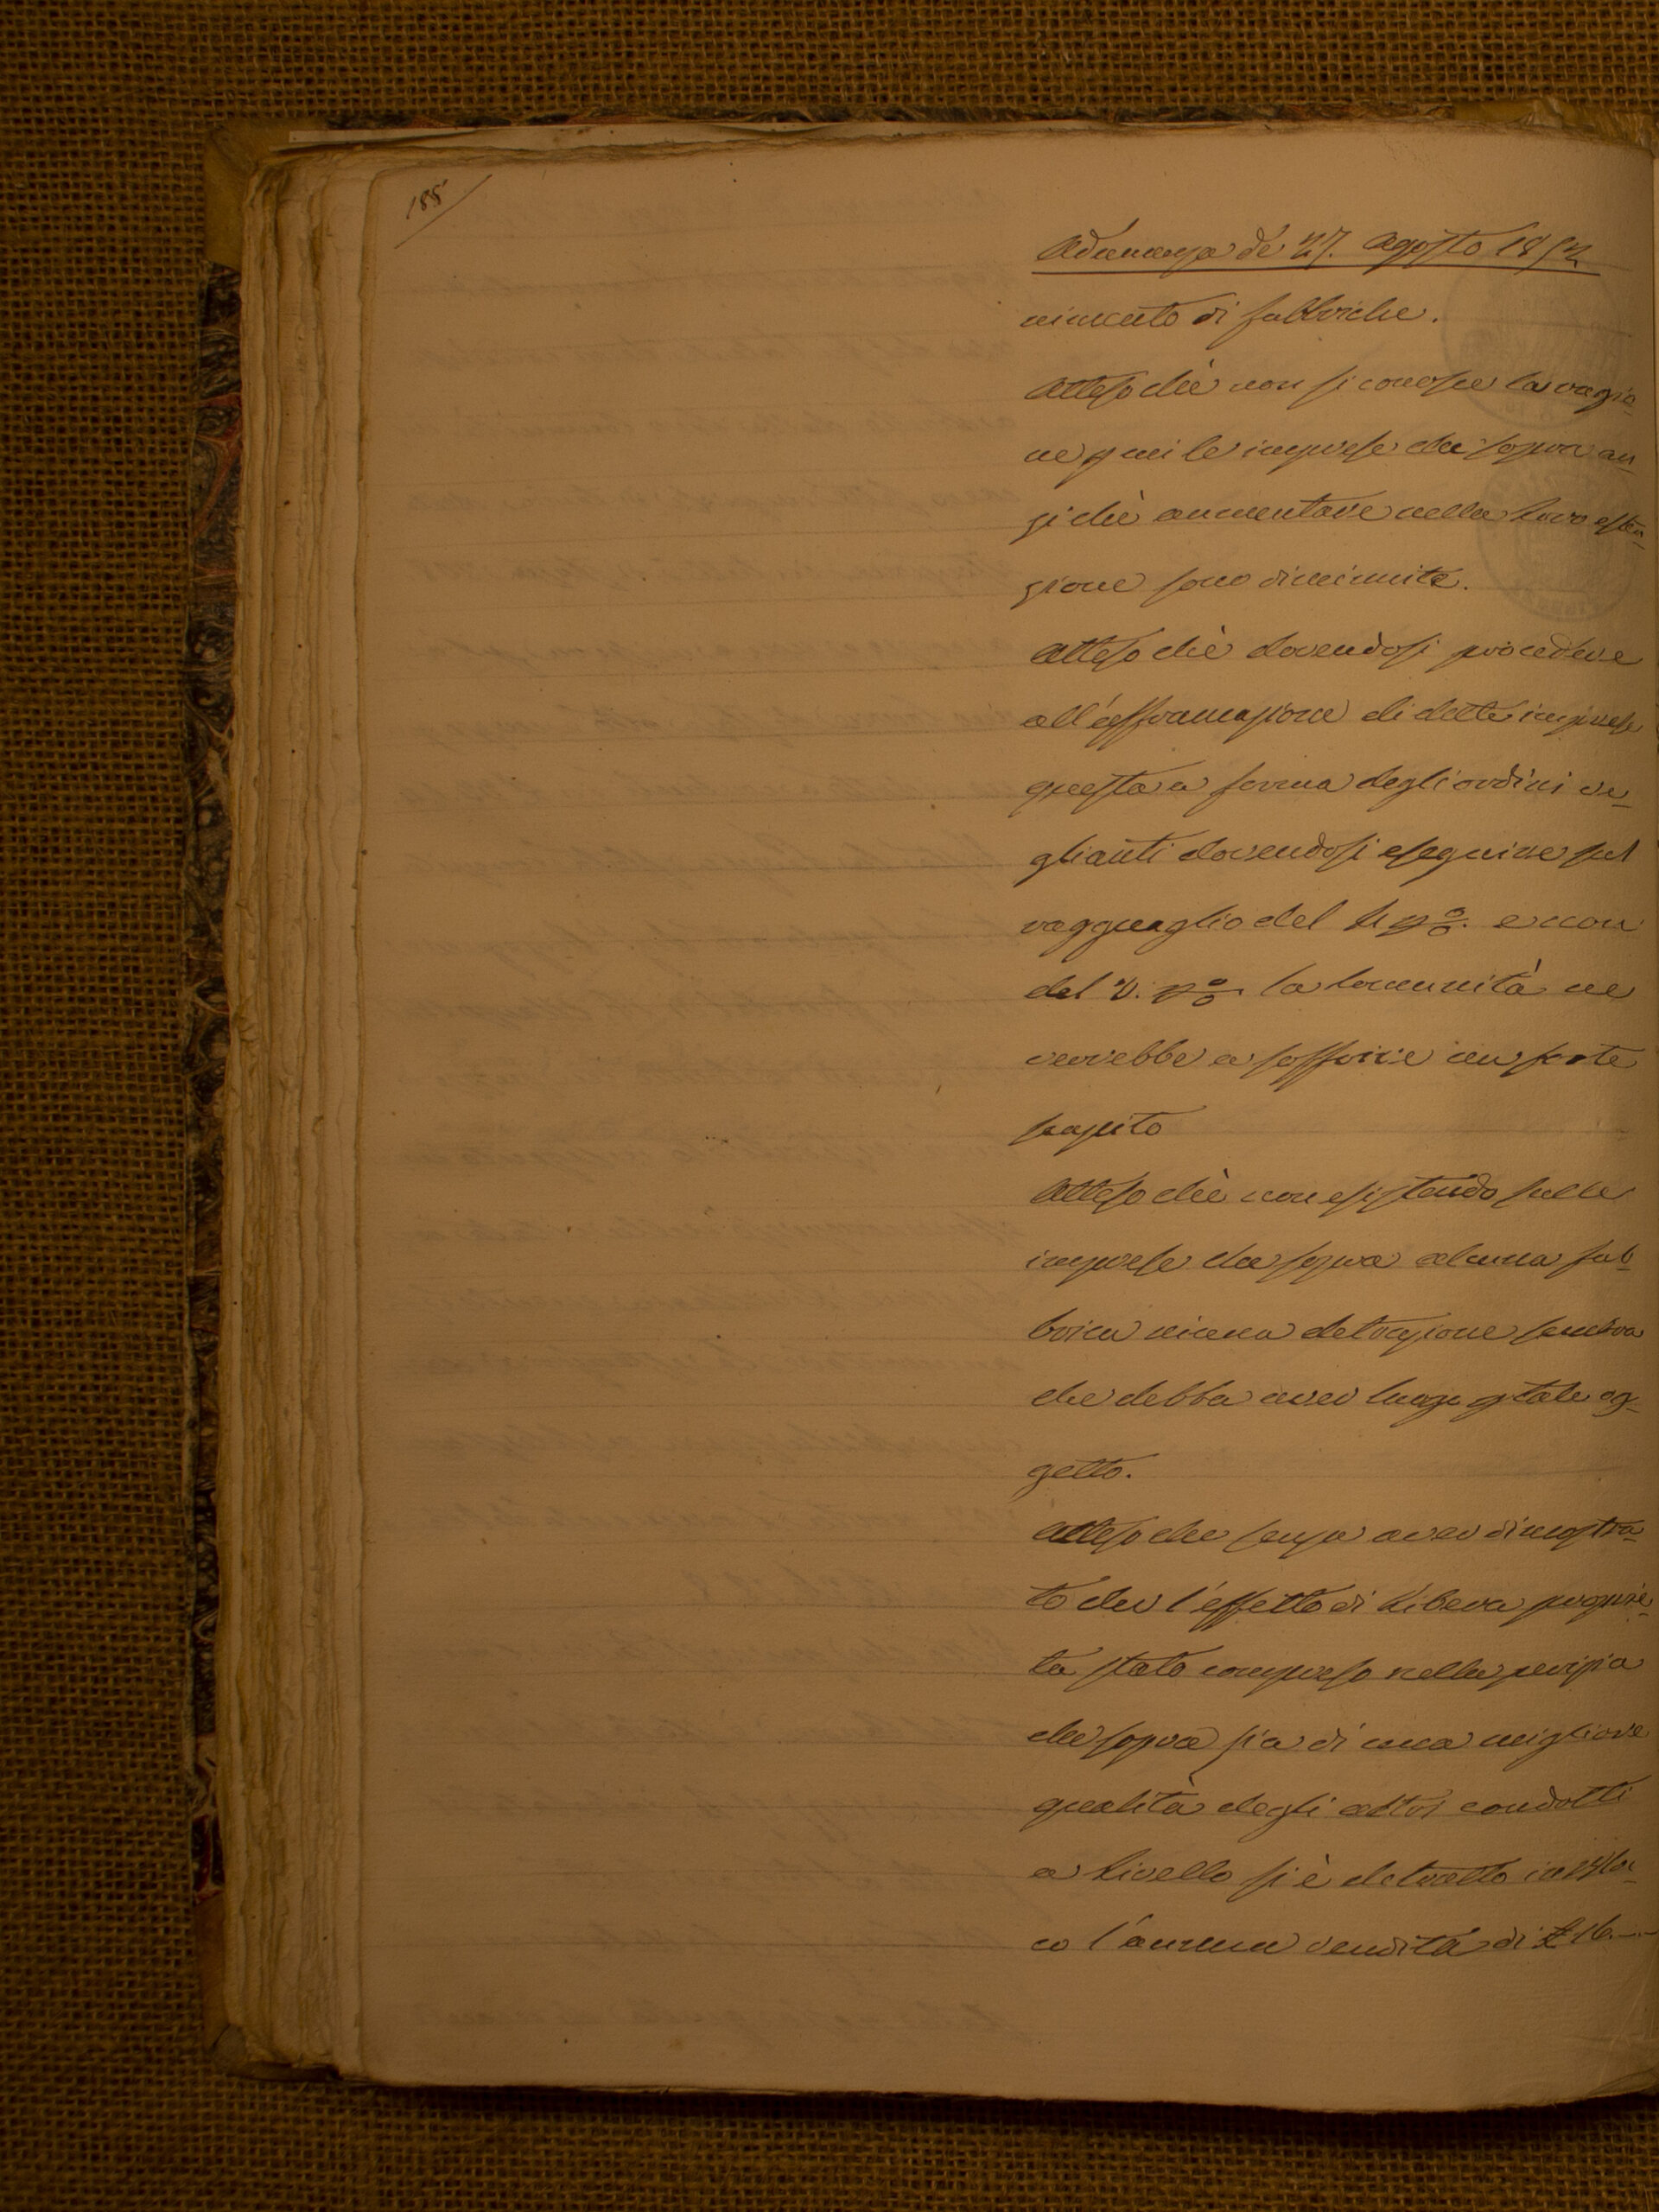 188
Adunanza de 27. Agosto 1852
nimento di fabbriche.
Attesoche non si conosce la ragio-
ne p cui le imprese che sopra an
ziche aumentare nella loro esten-
zione sono diminuite.
Attesoche dovendosi procedere
all'affrancazione di dette imprese
questa a forma degli ordini ve-
glianti dovendosi eseguire sul
ragguaglio del p % e non
del p % la Comunità ne
verrebbe a soffrire un forte
scapito
Attesoche non esistendo sulle
imprese che sopra alcuna fab
brica niuna detrazione sembra
che debba aver luogo p tale og-
getto.
Atteso che senza aver dimostra-
to che l'effetto di Libera proprie-
tà stato compreso nella perizia
che sopra sia di una migliore
qualità degli altri condotti
a Livello si è detratto
co l'annua rendita di £ 16.--